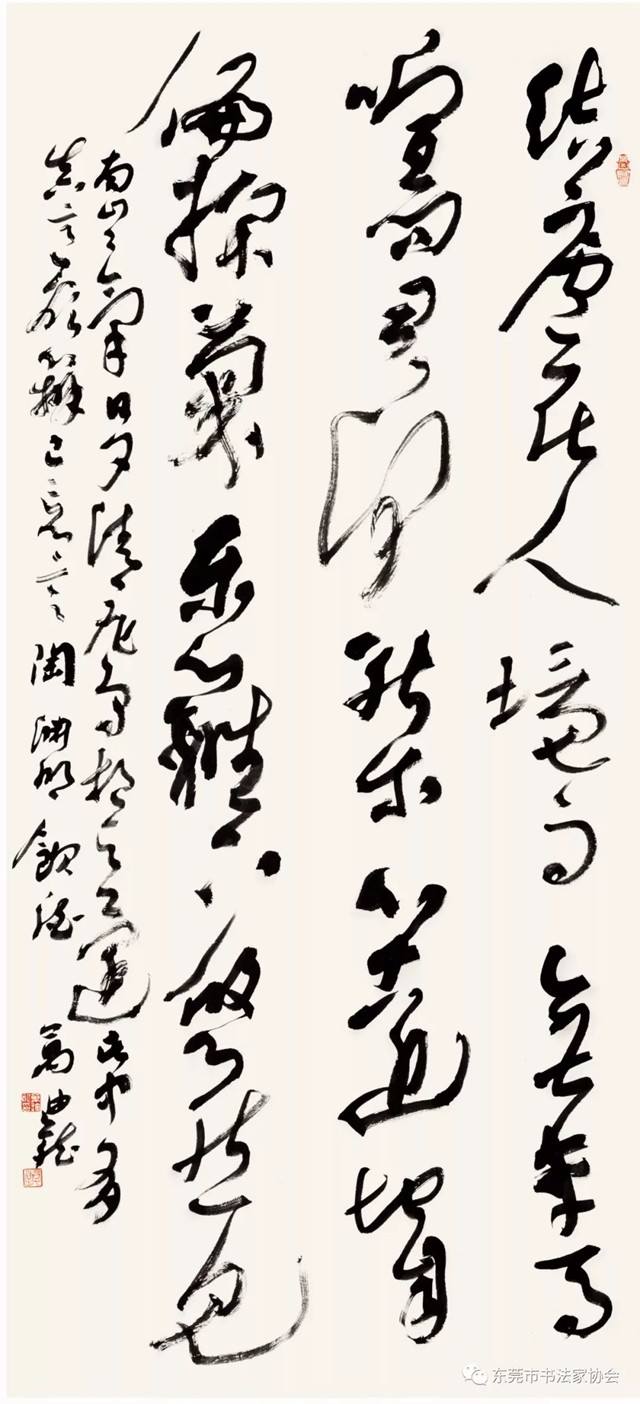 結廬在人境而無車馬
喧問君何能尓心遠地自
偏採菊東籬下悠然見
南山々氣日夕佳飛鳥相与還此中有
真意欲辨已忘言陶渊明飲酒
东莞市书法家协会